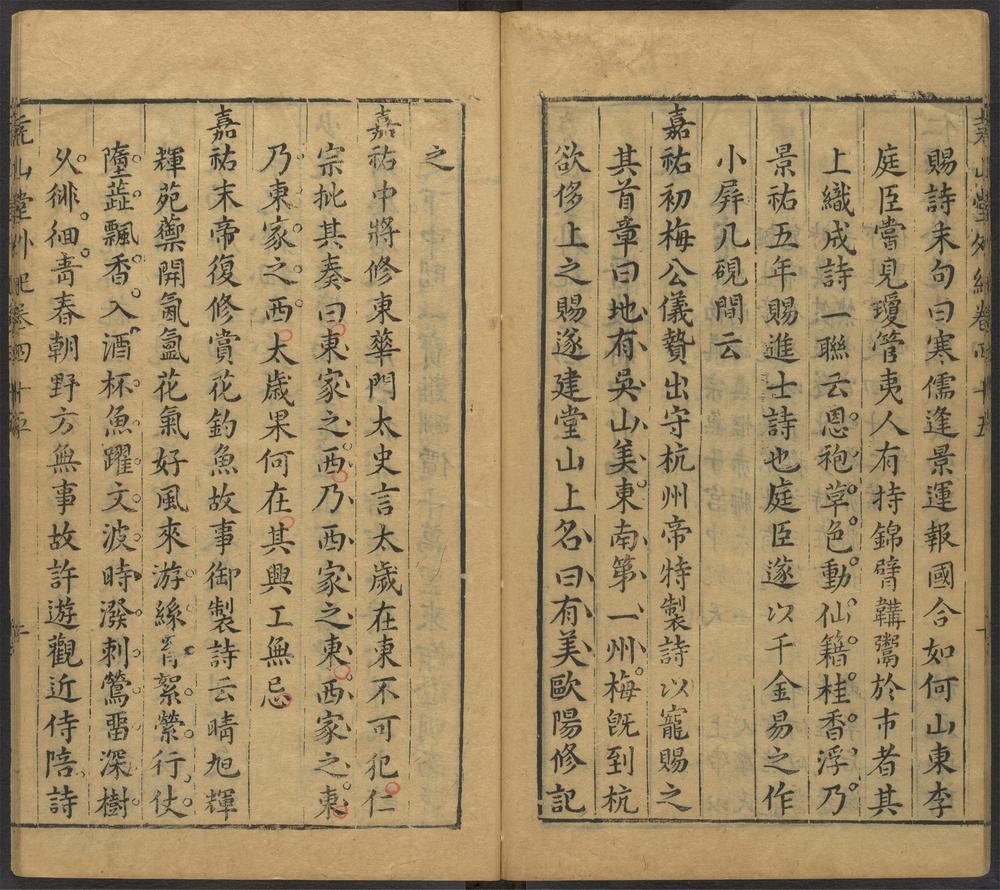 賜詩末句曰寒儒逢景運報國合如何山東李
庭臣嘗見瓊管夷人有持錦臂韝鬻於市者其
上織成詩一聯云恩袍草色動仙籍桂香浮乃
景祐五年賜進士詩也庭臣遂以千金易之作
小屏几硯間云
嘉祐初梅公儀摯出守杭州帝特製詩以寵賜之
其首章曰地有吳山美東南第一州梅旣到杭
欲侈上之賜遂建堂山上名曰有美歐陽修記
之
嘉祐中將修東華門太史言太歲在東不可犯仁
宗批其奏曰東家之西乃西家之東西家之東
乃東家之西太歲果何在其興工無忌
嘉祐末帝復修賞花釣魚故事御製詩云晴旭輝
輝苑蘌開氤氳花氣好風來游絲罥絮縈行仗
墮蘂飄香入酒杯魚躍文波時潑刺鶯畱深樹
久徘徊靑春朝野方無事故許遊觀近侍陪詩